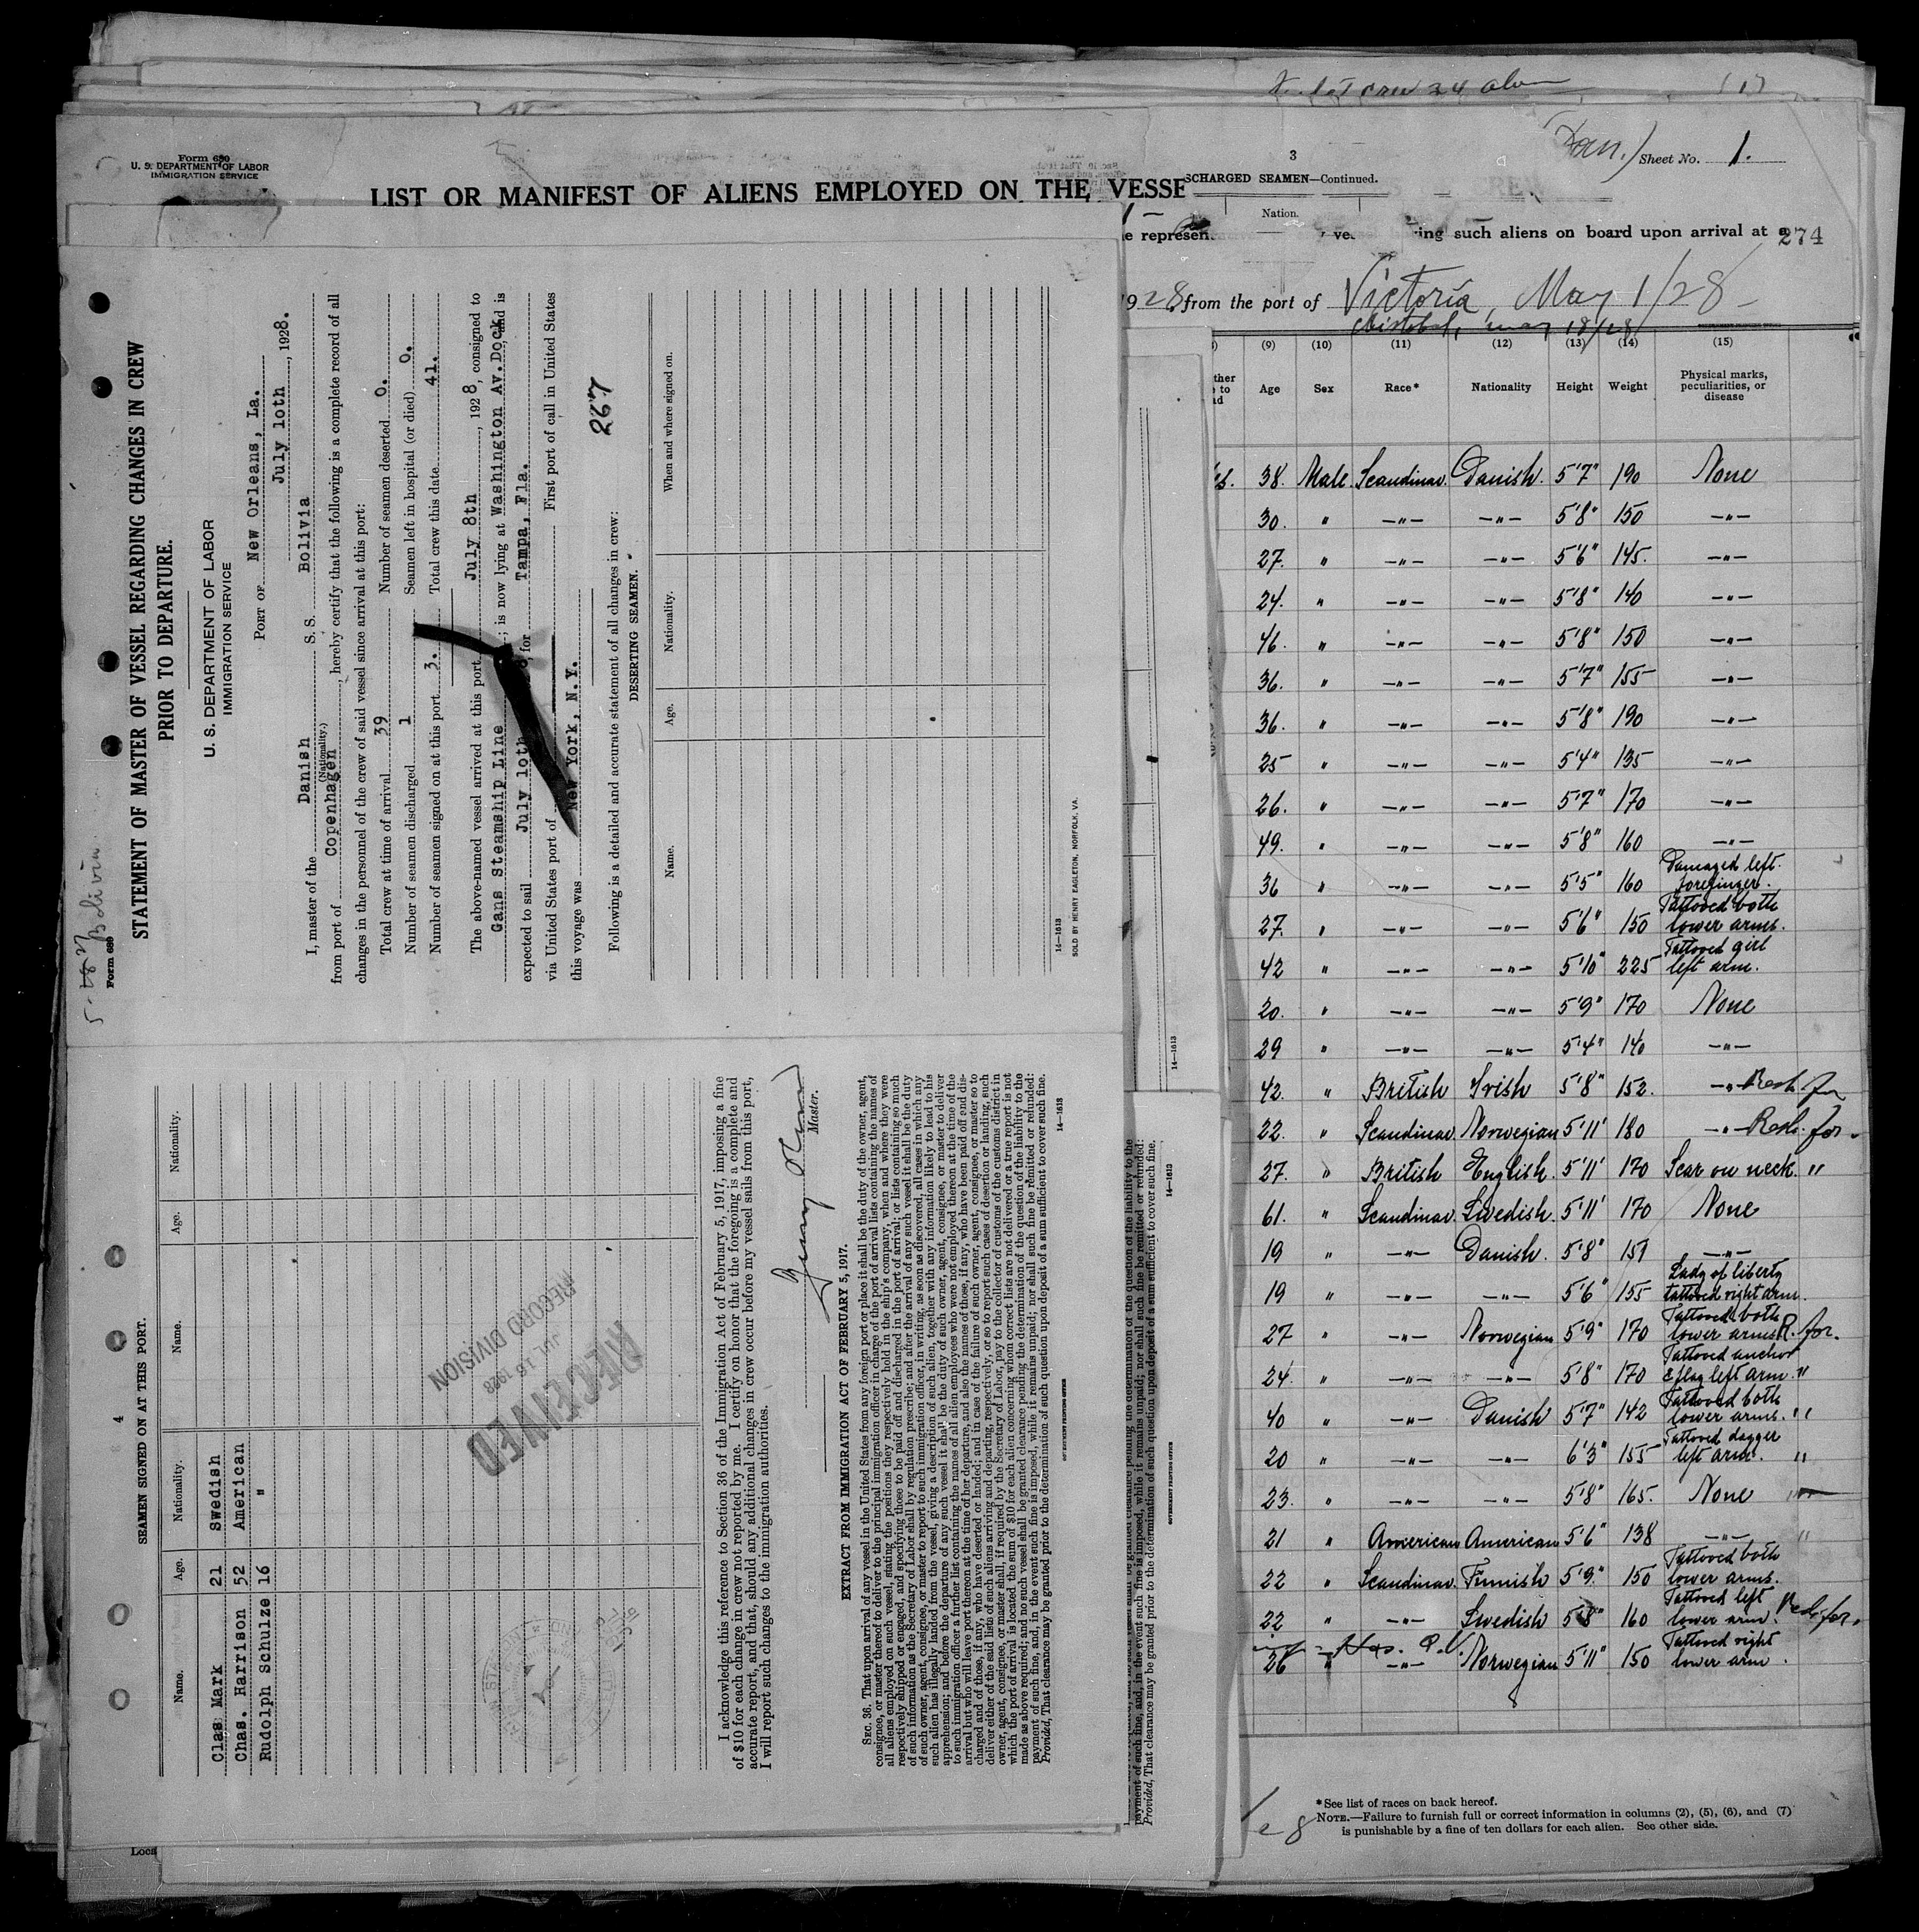 Form 680
U. S. DEPARTMENT OF LABOR
IMMIGRATION SERVICE
LIST OR MANIFEST OF ALIENS EMPLOYED ON THE VESSE
Sheet No. 1.
3
SCHARGED SEAMEN—Continued.
Nation.
such aliens on board upon arrival at a
274
1928 from the port of Victoria, May 1/28
Cristobal, May 18/28
(9) (10) (11) (12) (13) (14) (15)
Age Sex Race* Nationality Height Weight Physical marks, peculiarities, or disease
38. Male. Scandinav. Danish. 5'7" 190 None
30. " —"— —"— 5'8" 150 —"—
27. " —"— —"— 5'6" 145. —"—
24. " —"— —"— 5'8" 140 —"—
46. " —"— —"— 5'8" 150 —"—
36. " —"— —"— 5'7" 155 —"—
36. " —"— —"— 5'8" 190 —"—
25 " —"— —"— 5'4" 135 —"—
26. " —"— —"— 5'7" 170 —"—
49. " —"— —"— 5'8" 160 —"—
36 " —"— —"— 5'5" 160 Damaged left forefinger.
27. " —"— —"— 5'6" 150 Tattooed both lower arms.
42 " —"— —"— 5'10" 225 Tattooed girl left arm.
20. " —"— —"— 5'9" 170 None
29 " —"— —"— 5'4" 140 —"—
42. " British Irish 5'8" 152. —"—
22. " Scandinav. Norwegian 5'11' 180 —"—
27. " British English. 5'11' 170 Scar on neck. "
61. " Scandinav. Swedish. 5'11' 170 None
19 " —"— Danish. 5'8" 151 —"—
19 " —"— —"— 5'6" 155 Lady of liberty tattooed right arm.
27 " —"— Norwegian 5'9" 170 Tattooed both lower arms R. for.
24. " —"— —"— 5'8" 170 Tattooed anchor & flag left arm. "
40 " —"— Danish 5'7" 142 Tattooed both lower arms. "
20 " —"— —"— 6'3" 155 Tattooed dagger left arm. "
23. " —"— —"— 5'8" 165. None
21 " American American 5'6" 138 —"— "
22 " Scandinav. Finnish 5'9" 150 Tattooed both lower arms.
22 " —"— Swedish 5'8" 160 Tattooed left lower arm.
26 " —"— Norwegian 5'11" 150 Tattooed right lower arm.
*See list of races on back hereof.
NOTE.—Failure to furnish full or correct information in columns (2), (5), (6), and (7)
is punishable by a fine of ten dollars for each alien. See other side.
Bolivia
Form 689
STATEMENT OF MASTER OF VESSEL REGARDING CHANGES IN CREW
PRIOR TO DEPARTURE.
U. S. DEPARTMENT OF LABOR
IMMIGRATION SERVICE
PORT OF New Orleans, La.
July 10th, 1928.
I, master of the Danish S. S. Bolivia
(Nationality.)
from port of Copenhagen, hereby certify that the following is a complete record of all
changes in the personnel of the crew of said vessel since arrival at this port:
Total crew at time of arrival 39 Number of seamen deserted 0.
Number of seamen discharged 1 Seamen left in hospital (or died) 0.
Number of seamen signed on at this port 3. Total crew this date 41.
The above-named vessel arrived at this port July 8th, 1928, consigned to
Gans Steamship Line; is now lying at Washington Av. Dock, and is
expected to sail July 10th for Tampa, Fla.
via United States port of First port of call in United States
this voyage was New York, N.Y.
267
Following is a detailed and accurate statement of all changes in crew:
DESERTING SEAMEN.
Name. Age. Nationality. When and where signed on.
14—1613
SOLD BY HENRY EAGLETON, NORFOLK, VA.
4
SEAMEN SIGNED ON AT THIS PORT.
Name. Age. Nationality. Name. Age. Nationality.
Clas Mark 21 Swedish
Chas. Harrison 52 American
Rudolph Schulze 16 "
RECEIVED
JUL 16 1928
RECORD DIVISION
I acknowledge this reference to Section 36 of the Immigration Act of February 5, 1917, imposing a fine
of $10 for each change in crew not reported by me. I certify on honor that the foregoing is a complete and
accurate report, and that, should any additional changes in crew occur before my vessel sails from this port,
I will report such changes to the immigration authorities.
Master.
EXTRACT FROM IMMIGRATION ACT OF FEBRUARY 5, 1917.
SEC. 36. That upon arrival of any vessel in the United States from any foreign port or place it shall be the duty of the owner, agent,
consignee, or master thereof to deliver to the principal immigration officer in charge of the port of arrival lists containing the names of
all aliens employed on such vessel, stating the positions they respectively hold in the ship's company, when and where they were
respectively shipped or engaged, and specifying those to be paid off and discharged in the port of arrival; or lists containing so much
of such information as the Secretary of Labor shall by regulation prescribe; and after the arrival of any such vessel it shall be the duty
of such owner, agent, consignee, or master to report to such immigration officer, in writing, as soon as discovered, all cases in which any
such alien has illegally landed from the vessel, giving a description of such alien, together with any information likely to lead to his
apprehension; and before the departure of any such vessel it shall be the duty of such owner, agent, consignee, or master to deliver
to such immigration officer a further list containing the names of all alien employees who were not employed thereon at the time of the
arrival but who will leave port thereon at the time of her departure, and also the names of those, if any, who have been paid off and dis-
charged and of those, if any, who have deserted or landed; and in case of the failure of such owner, agent, consignee, or master so to
deliver either of the said lists of such aliens arriving and departing, respectively, or so to report such cases of desertion or landing, such
owner, agent, consignee, or master shall, if required by the Secretary of Labor, pay to the collector of customs of the customs district in
which the port of arrival is located the sum of $10 for each alien concerning whom correct lists are not delivered or a true report is not
made as above required; and no such vessel shall be granted clearance pending the determination of the question of the liability to the
payment of such fine, and, in the event such fine is imposed, while it remains unpaid; nor shall such fine be remitted or refunded:
Provided, That clearance may be granted prior to the determination of such question upon deposit of a sum sufficient to cover such fine.
14—1613